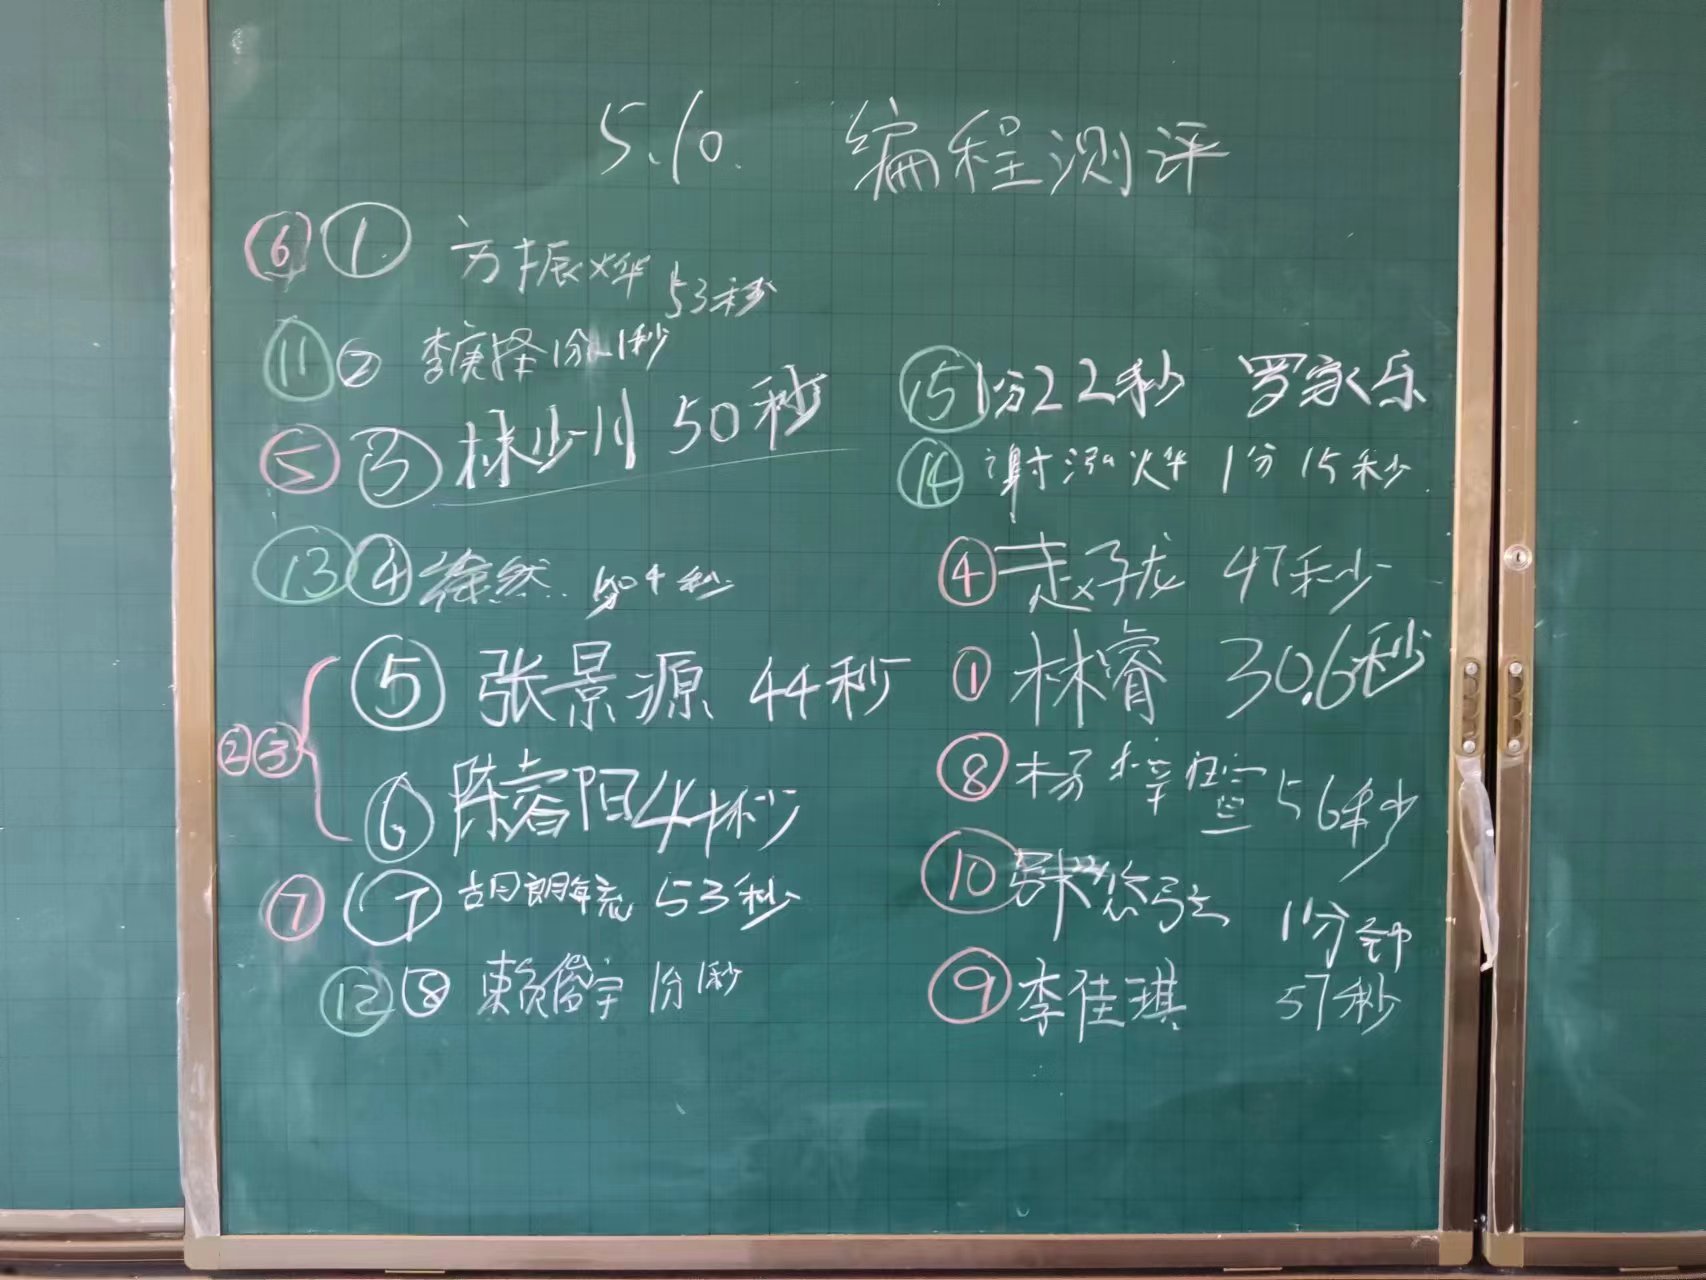 5.10. 编程测评
⑥ ① 方振烨 53秒
⑪ ② 李庚择 1分1秒
⑤ ③ 林少川 50秒
⑬ ④ 徐然 4秒
⑤ 张景源 44秒
②③
⑥ 陈睿阳 44秒
⑦ ⑦ 胡朗 53秒
⑫ ⑧ 赖俊宇 1分1秒
⑮ 1分22秒 罗家乐
⑭ 谢泓烨 1分15秒
④ 赵子龙 47秒
① 林睿 30.6秒
⑧ 杨梓萱 56秒
⑩ 1分钟
⑨ 李佳琪 57秒